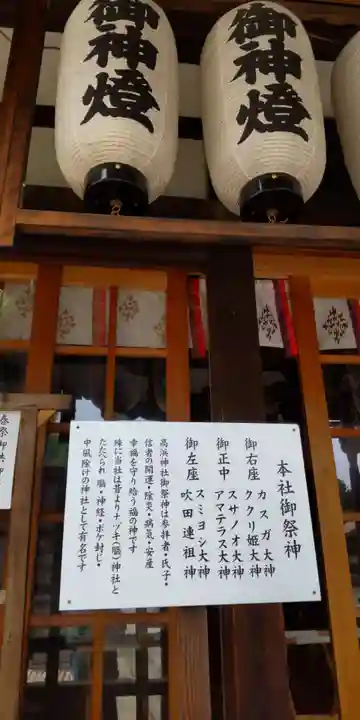 御神燈
御神燈
本社御祭神
御右座 カスガ大神
ククリ姫大神
御正中 スサノオ大神
アマテラス大神
御左座 スミヨシ大神
吹田連祖神
高浜神社御祭神は参拝者・氏子・
信者の開運・除災・病気・安産
幸福を守り給う福の神です
殊に当社は昔よりナヅキ(脳)神社と
たたへられ 脳・神経・ボケ封じ・
中風除けの神社として有名です